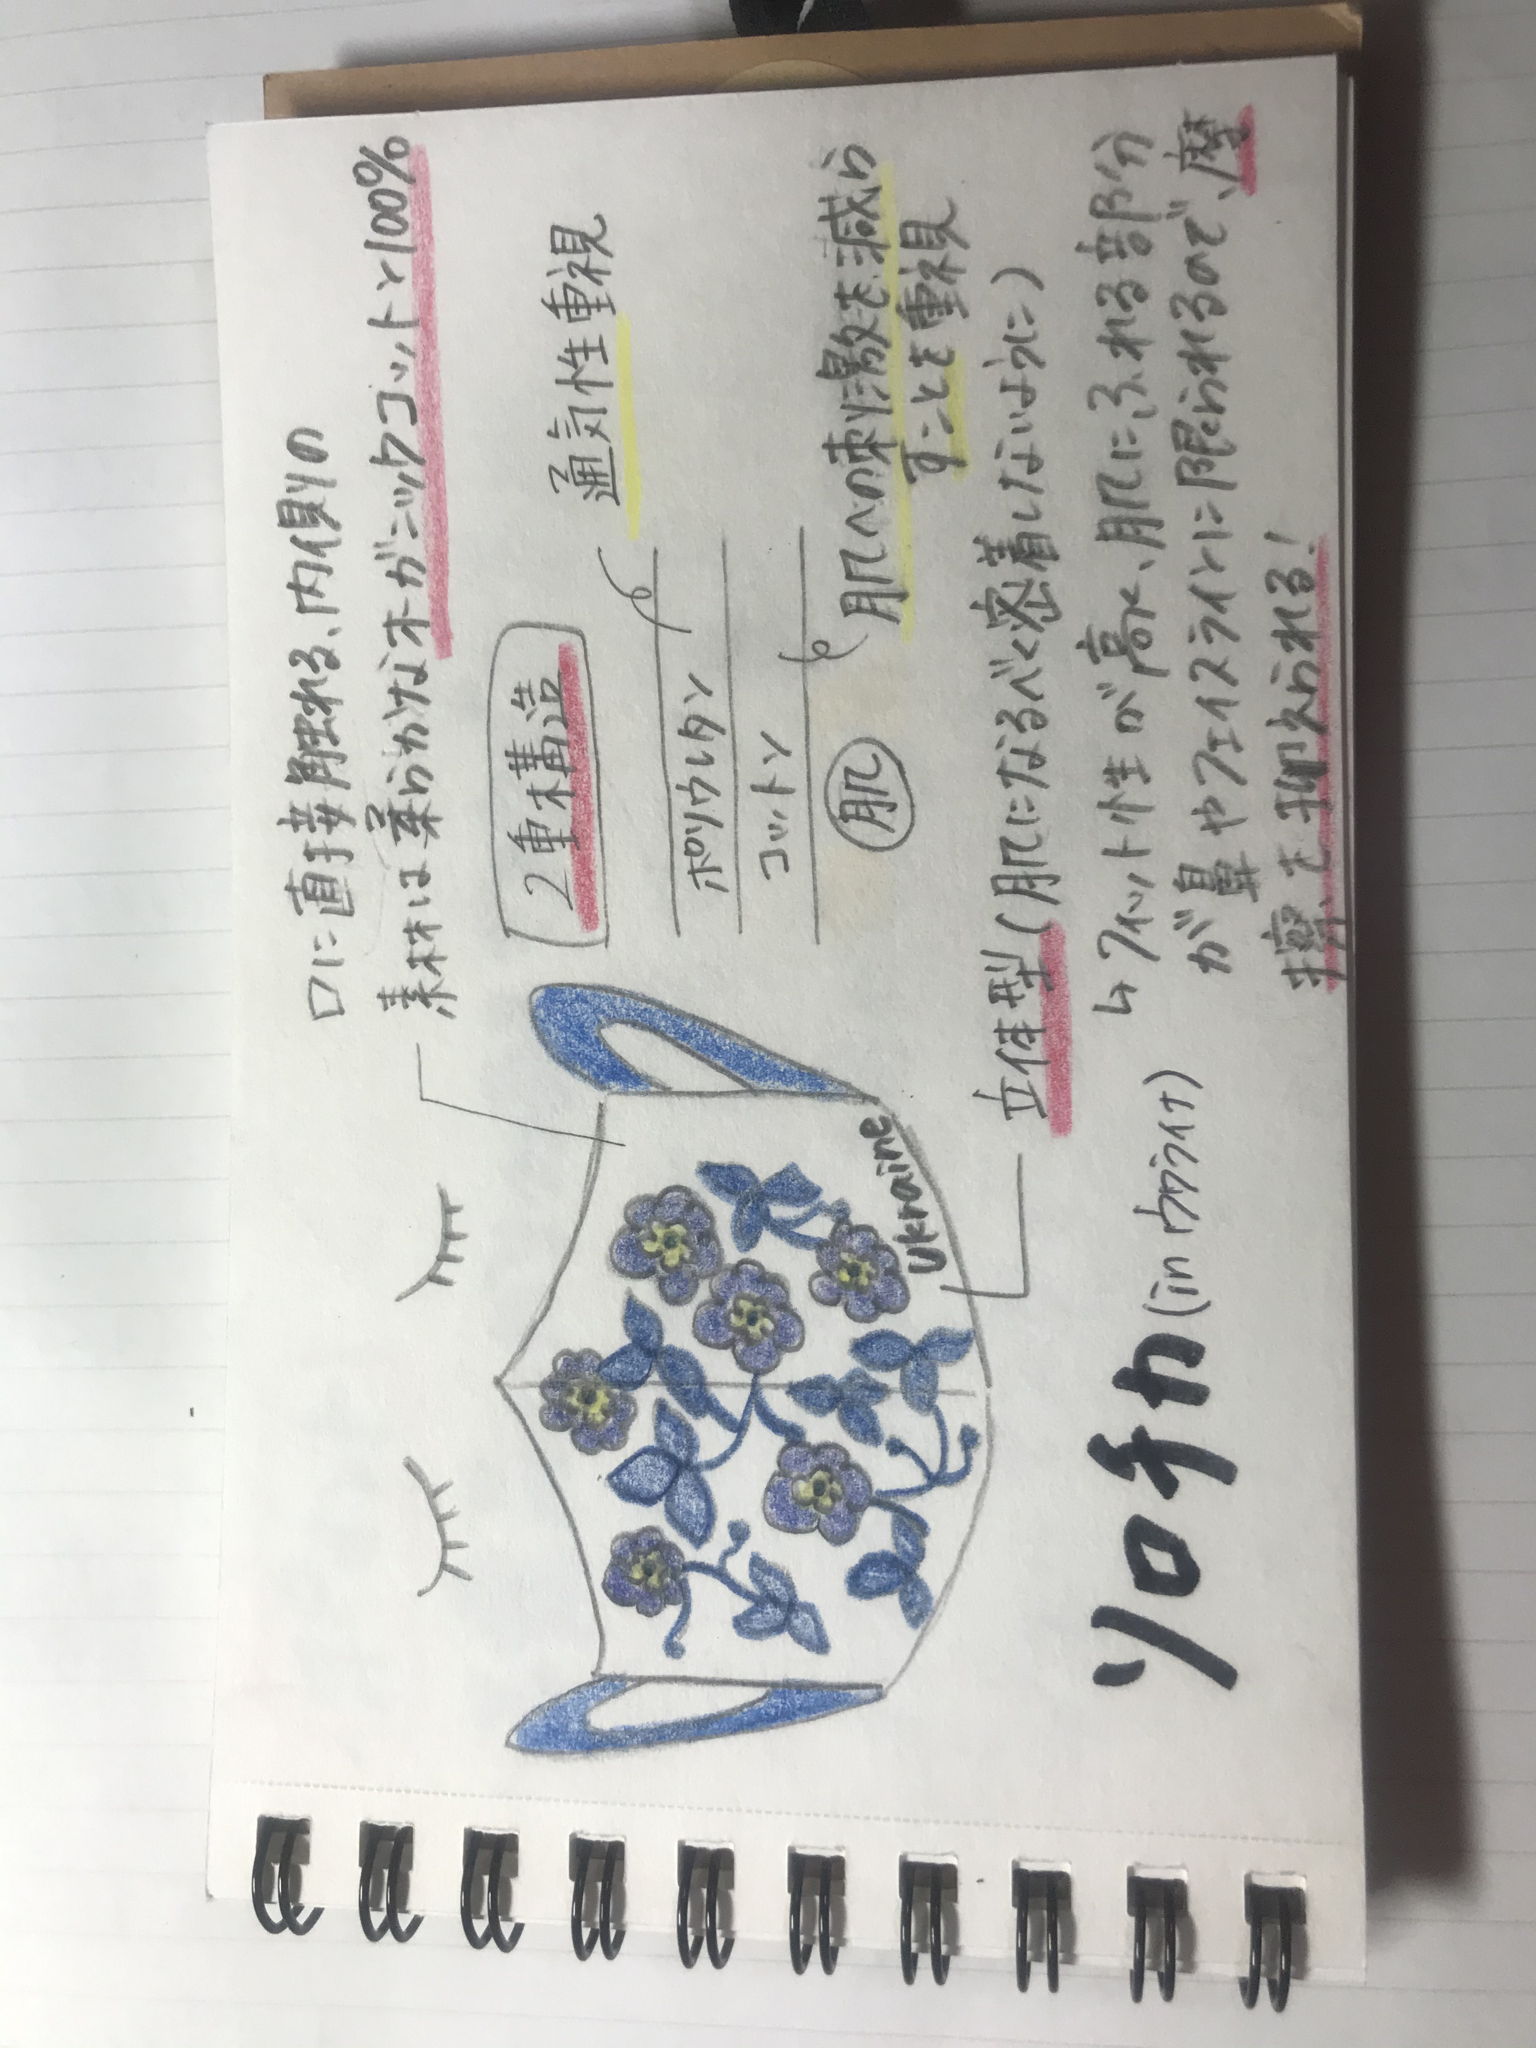 口に直接触れる、内側の
素材は柔らかなオーガニックコットン100%
2重構造
通気性重視
ポリウレタン
コットン
肌
肌への刺激を減ら
すことを重視
Ukraine
立体型(肌になるべく密着しないように)
↳フィット性が高く、肌にふれる部分
が鼻やフェイスラインに限られるので、摩
擦を抑えられる!
ソロチカ(in ウクライナ)